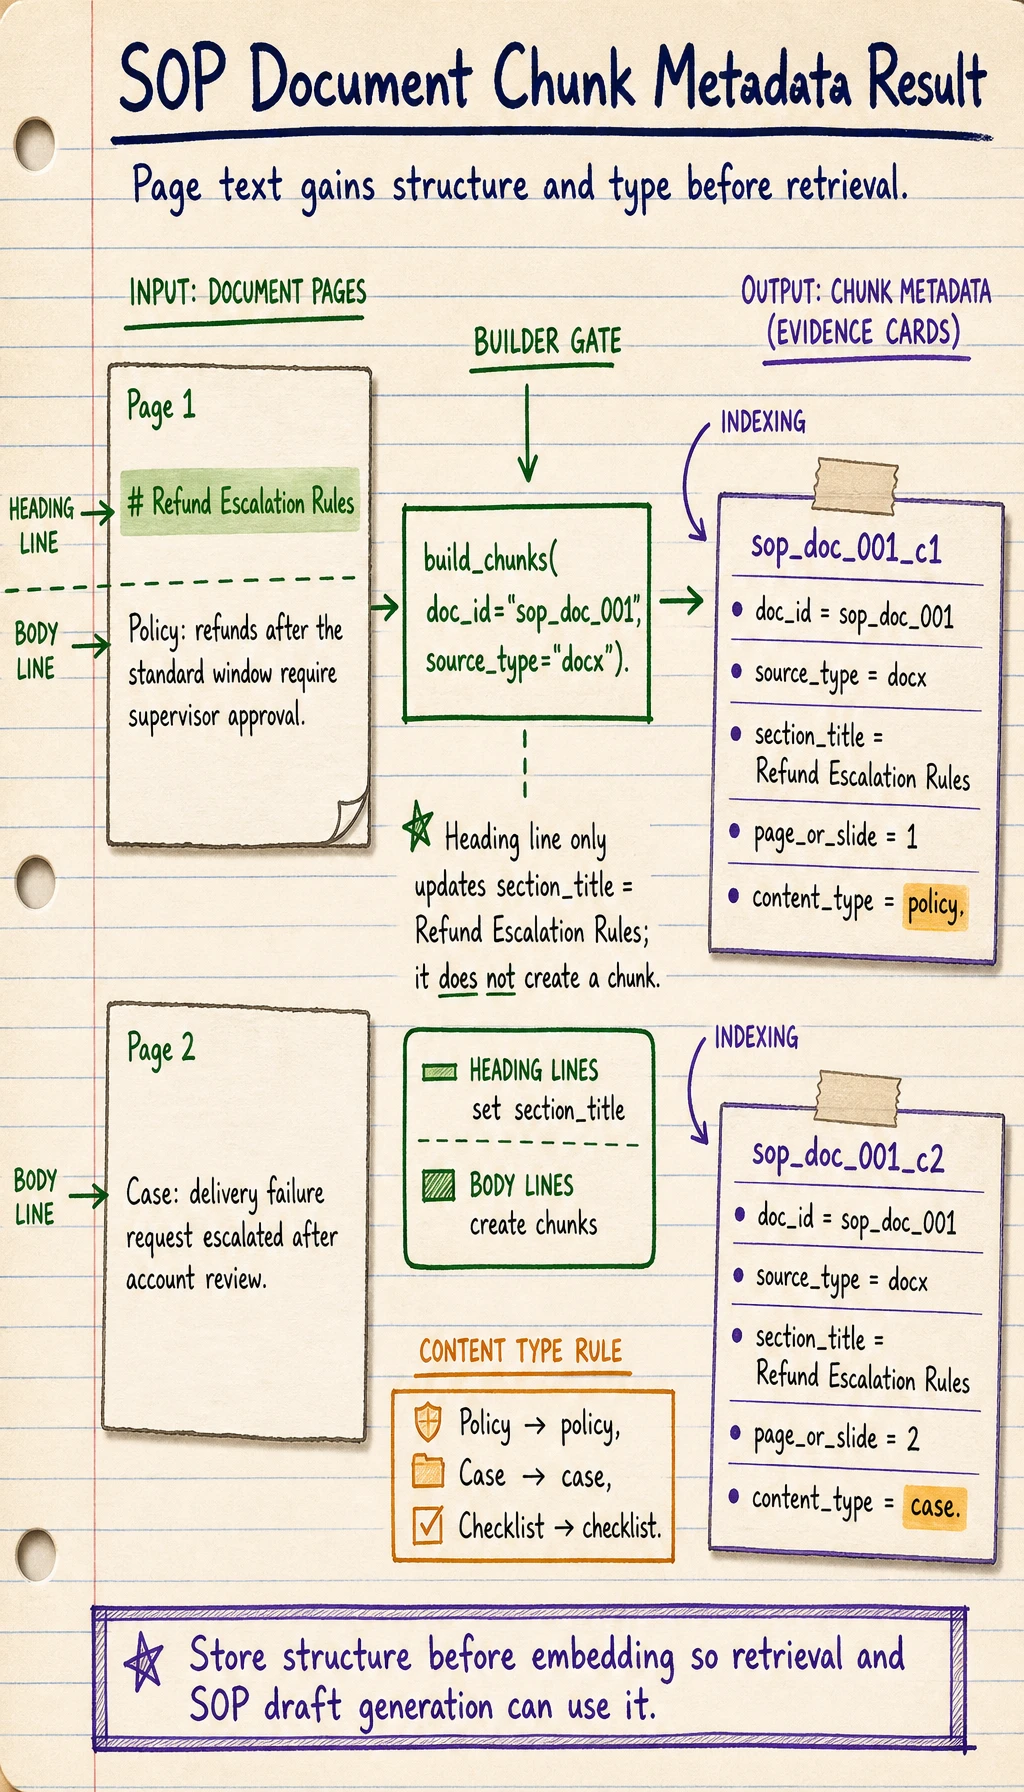 SOP Document Chunk Metadata Result
Page text gains structure and type before retrieval.
INPUT: DOCUMENT PAGES
Page 1
HEADING
LINE
# Refund Escalation Rules
BODY
LINE
Policy: refunds after the
standard window require
supervisor approval.
Page 2
BODY
LINE
Case: delivery failure
request escalated after
account review.
BUILDER GATE
build_chunks(
doc_id="sop_doc_001",
source_type="docx").
Heading line only
updates section_title =
Refund Escalation Rules;
it does not create a chunk.
HEADING LINES
set section_title
BODY LINES
create chunks
CONTENT TYPE RULE
Policy → policy,
Case → case,
Checklist → checklist.
OUTPUT: CHUNK METADATA
(EVIDENCE CARDS)
INDEXING
sop_doc_001_c1
• doc_id = sop_doc_001
• source_type = docx
• section_title =
Refund Escalation Rules
• page_or_slide = 1
• content_type = policy,
INDEXING
sop_doc_001_c2
• doc_id = sop_doc_001
• source_type = docx
• section_title =
Refund Escalation Rules
• page_or_slide = 2
• content_type = case.
Store structure before embedding so retrieval and
SOP draft generation can use it.